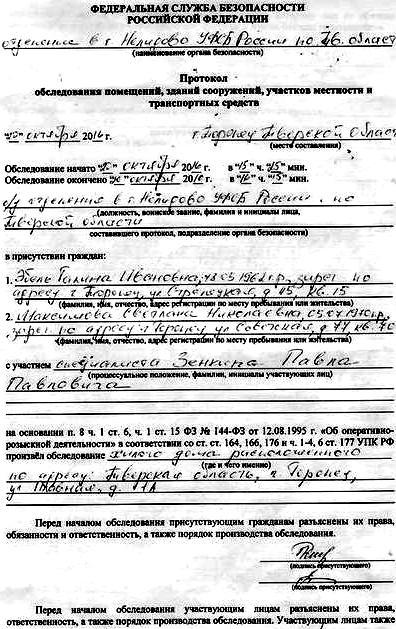 ФЕДЕРАЛЬНАЯ СЛУЖБА БЕЗОПАСНОСТИ
РОССИЙСКОЙ ФЕДЕРАЦИИ
отделение в г. Нелидово УФСБ России по Тв. област
(наименование органа безопасности)
Протокол
обследования помещений, зданий сооружений, участков местности и
транспортных средств
октября 2016 г. г. Торопец Тверской Област
(место составления)
Обследование начато октября 2016 г. в "15" ч. мин.
Обследование окончено октября 2016 г. в "16" ч. "15" мин.
отделения в г. Нелидово УФСБ России по
Тверской области
(должность, воинское звание, фамилия и инициалы лица,
составившего протокол, подразделение органа безопасности)
в присутствии граждан:
1. Галина Ивановна, зарег по
адресу г Торопец, ул д 45 кв. 15
(фамилия, имя, отчество, адрес регистрации по месту пребывания или жительства)
2. Максимова Светлана Николаевна, 05.07.1970 г.р.,
зарег по адресу г Торопец ул Советская, д 77 кв. 70
(фамилия, имя, отчество, адрес регистрации по месту пребывания или жительства)
с участием специалиста Зенкина Павла
(процессуальное положение, фамилии, инициалы участвующих лиц)
Павловича
на основании п. 8 ч. 1 ст. 6, ч. 1 ст. 15 ФЗ № 144-ФЗ от 12.08.1995 г. «Об оперативно-
розыскной деятельности» в соответствии со ст. ст. 164, 166, 176 и ч. 1-4, 6 ст. 177 УПК РФ
произвёл обследование жилого дома расположенного
(где и чего именно)
по адресу: Тверская область, г. Торопец,
ул д. 11А
Перед началом обследования присутствующим гражданам разъяснены их права,
обязанности и ответственность, а также порядок производства обследования.
(подпись присутствующего)
(подпись присутствующего)
Перед началом обследования участвующим лицам разъяснены их права,
ответственность, а также порядок производства обследования. Участвующим лицам также